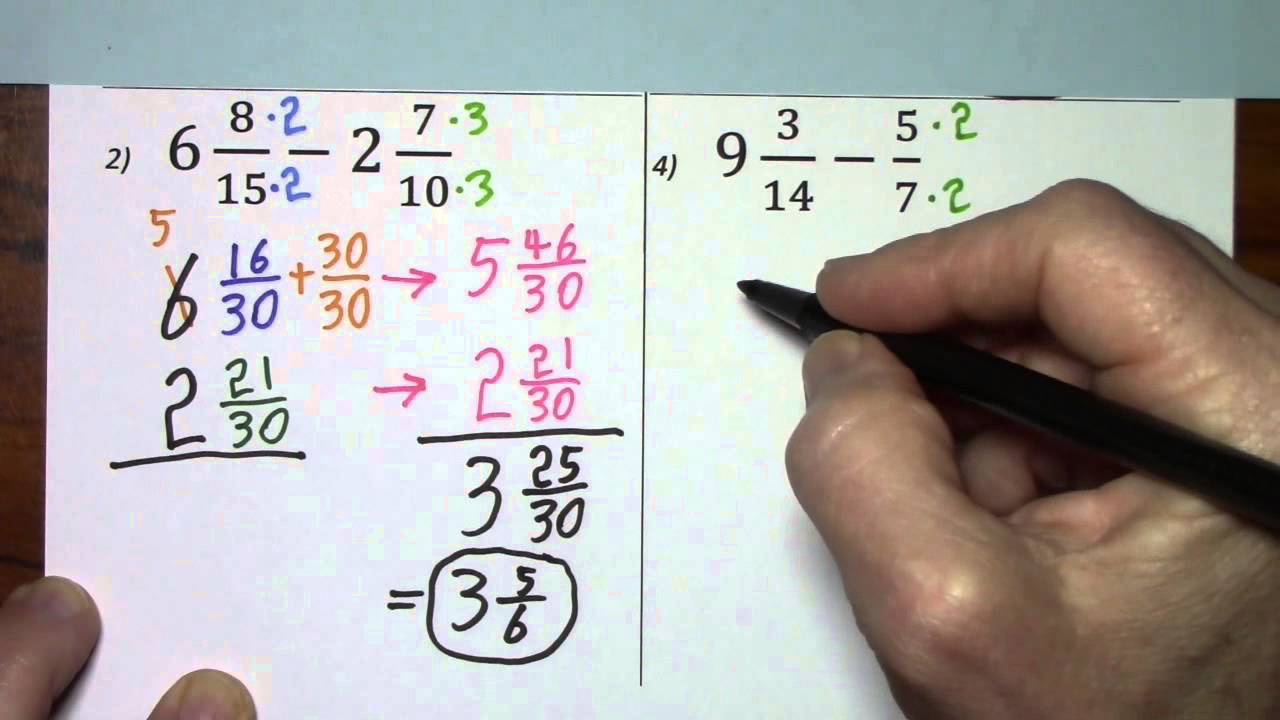 2) 6 8/15 ·2/·2 − 2 7/10 ·3/·3
5
6 16/30 + 30/30 → 5 46/30
2 21/30 → 2 21/30
3 25/30
= 3 5/6
4) 9 3/14 − 5/7 ·2/·2